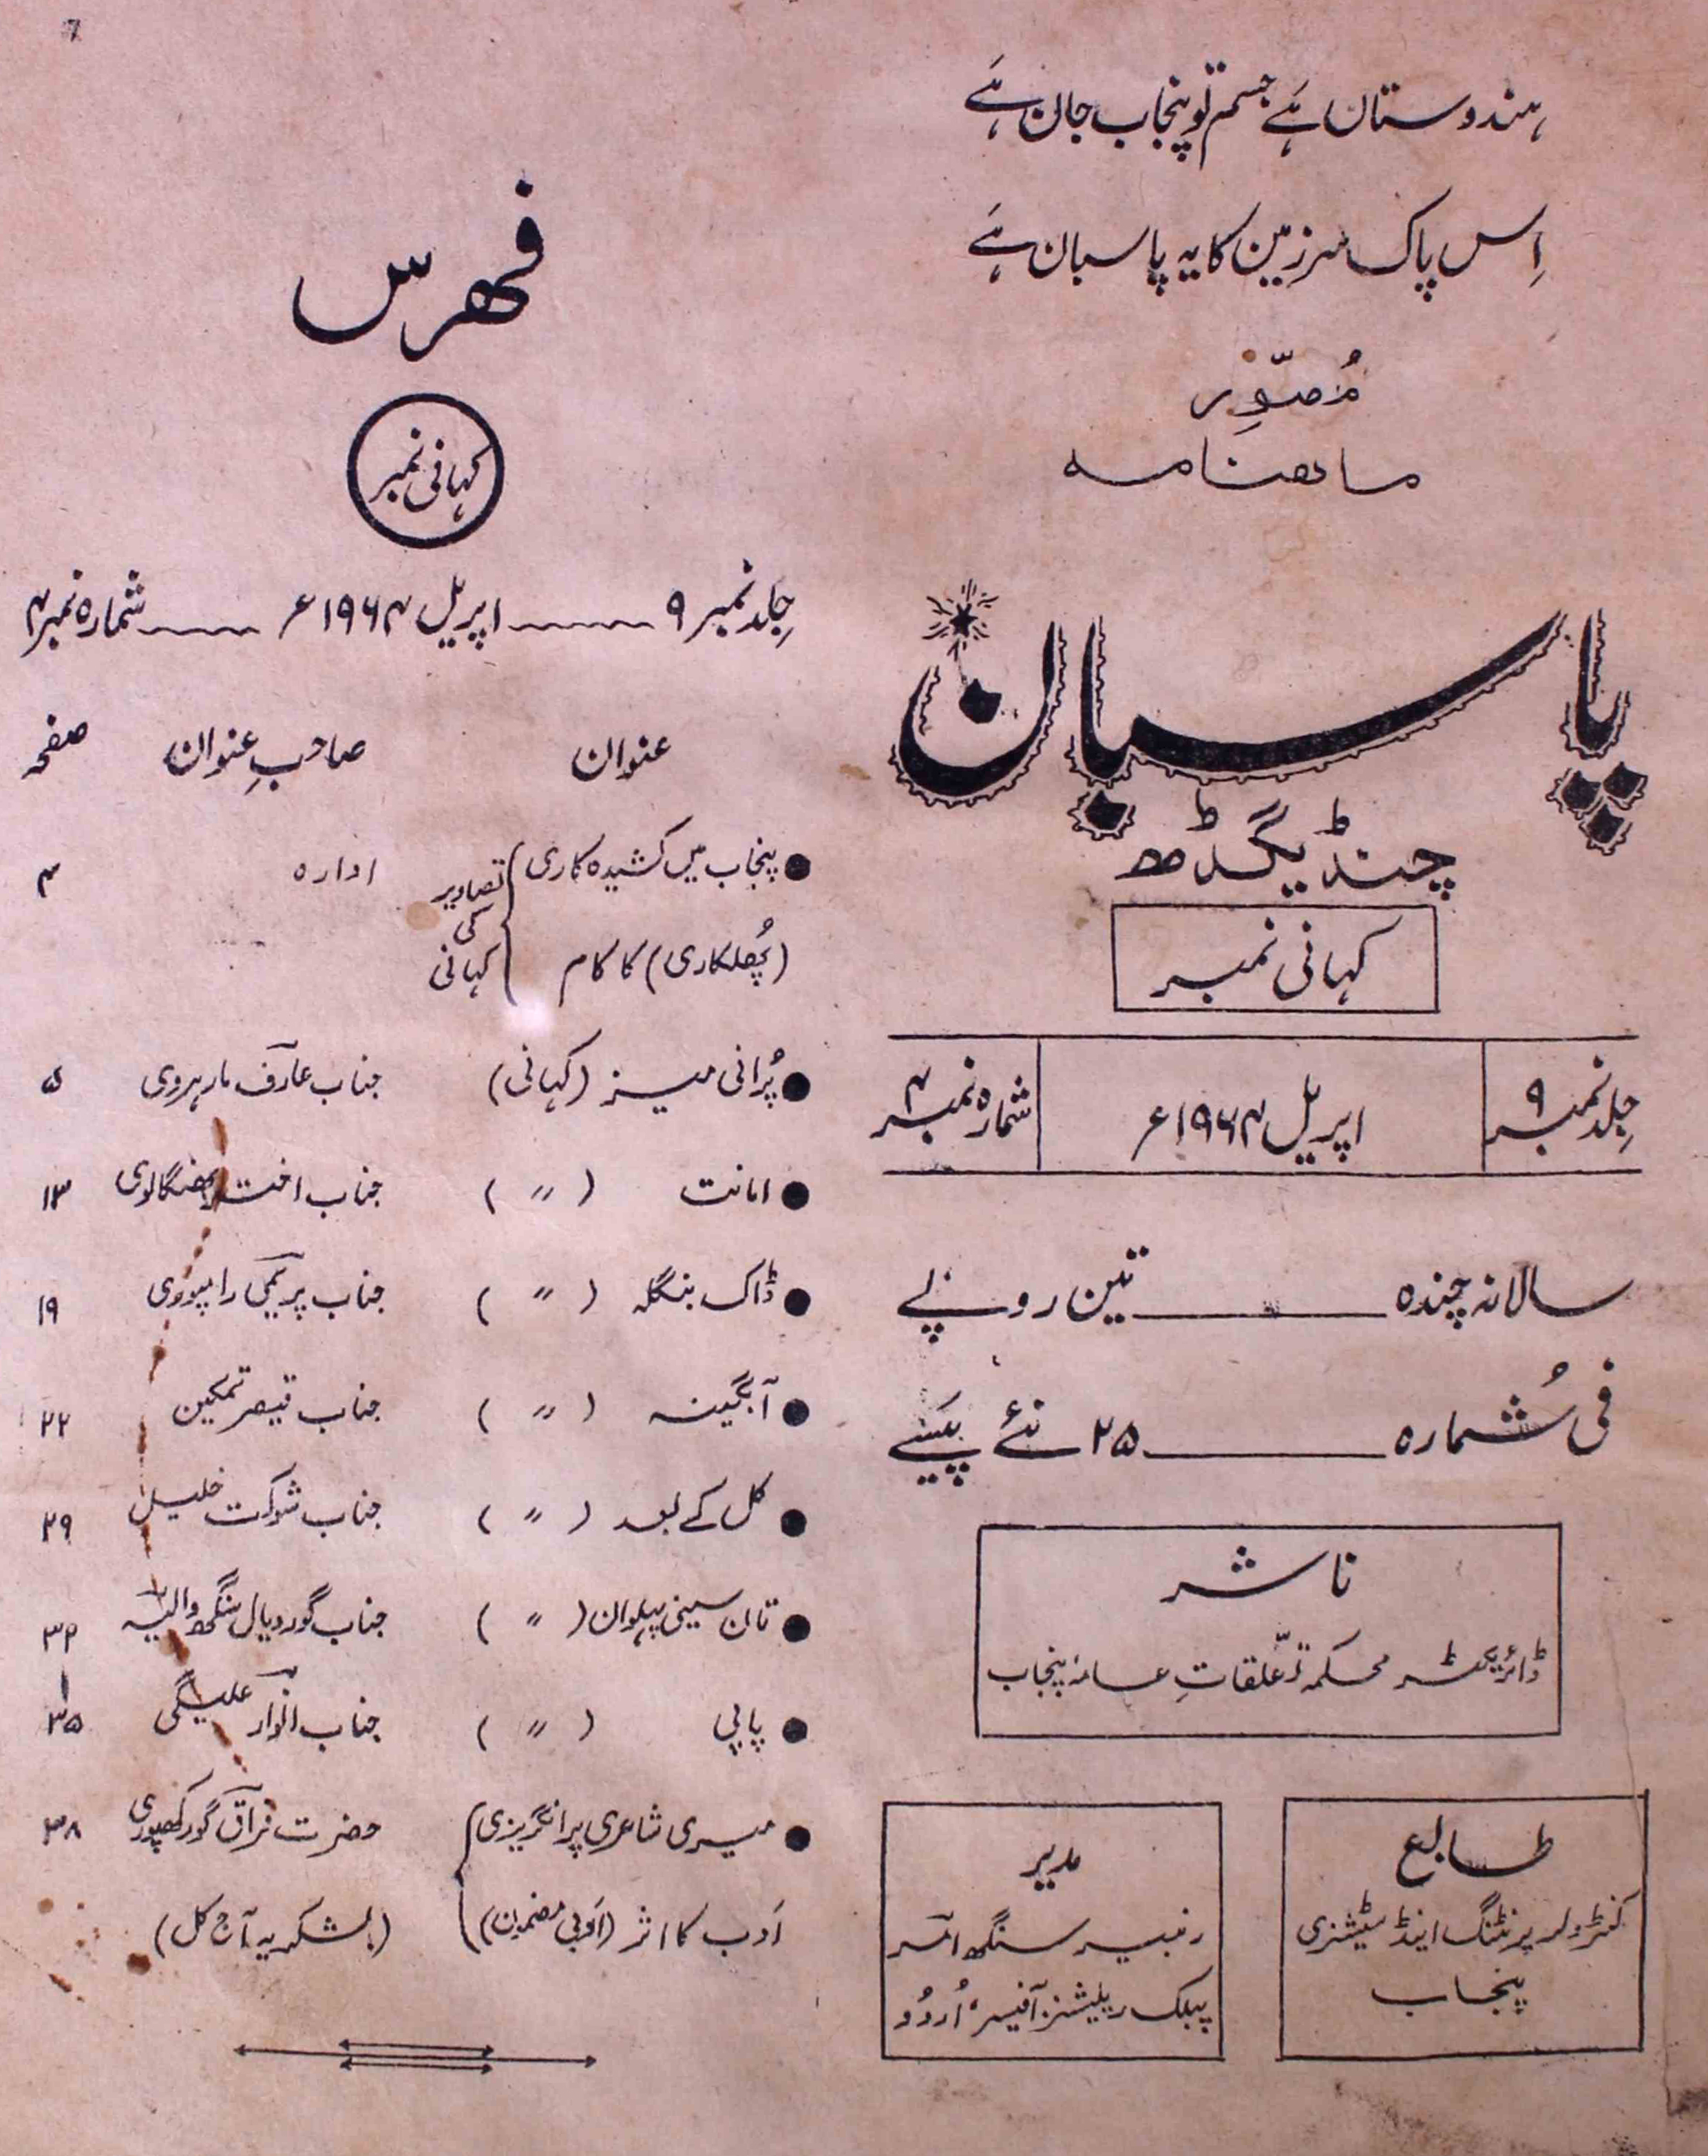 ہندوستان ہے جسم تو پنجاب جان ہے
اِس پاک سرزمین کا یہ پاسبان ہے
مُصوّر
ماہنامہ
پاسبان
چنڈیگڈھ
کہانی نمبر
جِلد نمبر ۹
اپریل ۱۹۶۴ء
شمارہ نمبر ۴
سالانہ چندہ ـــــ تین روپے
فی شُمارہ ـــــ ۲۵ نئے پیسے
ناشر
ڈائریکٹر محکمہ تعلّقاتِ عامہ پنجاب
طابع
کنٹرولر پرنٹنگ اینڈ سٹیشنری
پنجاب
مدیر
رنبیر سنگھ امر
پبلک ریلیشنز آفیسر اُردُو
فہرس
کہانی نمبر
جِلد نمبر ۹ ـــــ اپریل ۱۹۶۴ء ـــــ شمارہ نمبر ۴
عنوان صاحبِ عنوان صفحہ
● پنجاب میں کشیدہ کاری تصاویر ادارہ ۴
کی
(پُھلکاری) کا کام کہانی
● پُرانی میز (کہانی) جناب عارف مارہروی ۵
● امانت ( 〃 ) جناب اختر بھنگالوی ۱۳
● ڈاک بنگلہ ( 〃 ) جناب پریمی رامپوری ۱۹
● آبگینہ ( 〃 ) جناب قیصر تمکین ۲۲
● کل کے بعد ( 〃 ) جناب شوکت خلیل ۲۹
● تان سینی پہلوان ( 〃 ) جناب گوردیال سنگھ والیہ ۳۲
● پاپی ( 〃 ) جناب انوار علیگی ۳۵
● میری شاعری پر انگریزی حضرت فراق گورکھپوری ۳۸
اَدب کا اثر (اَدبی مضمون) (بشکریہ آج کل)